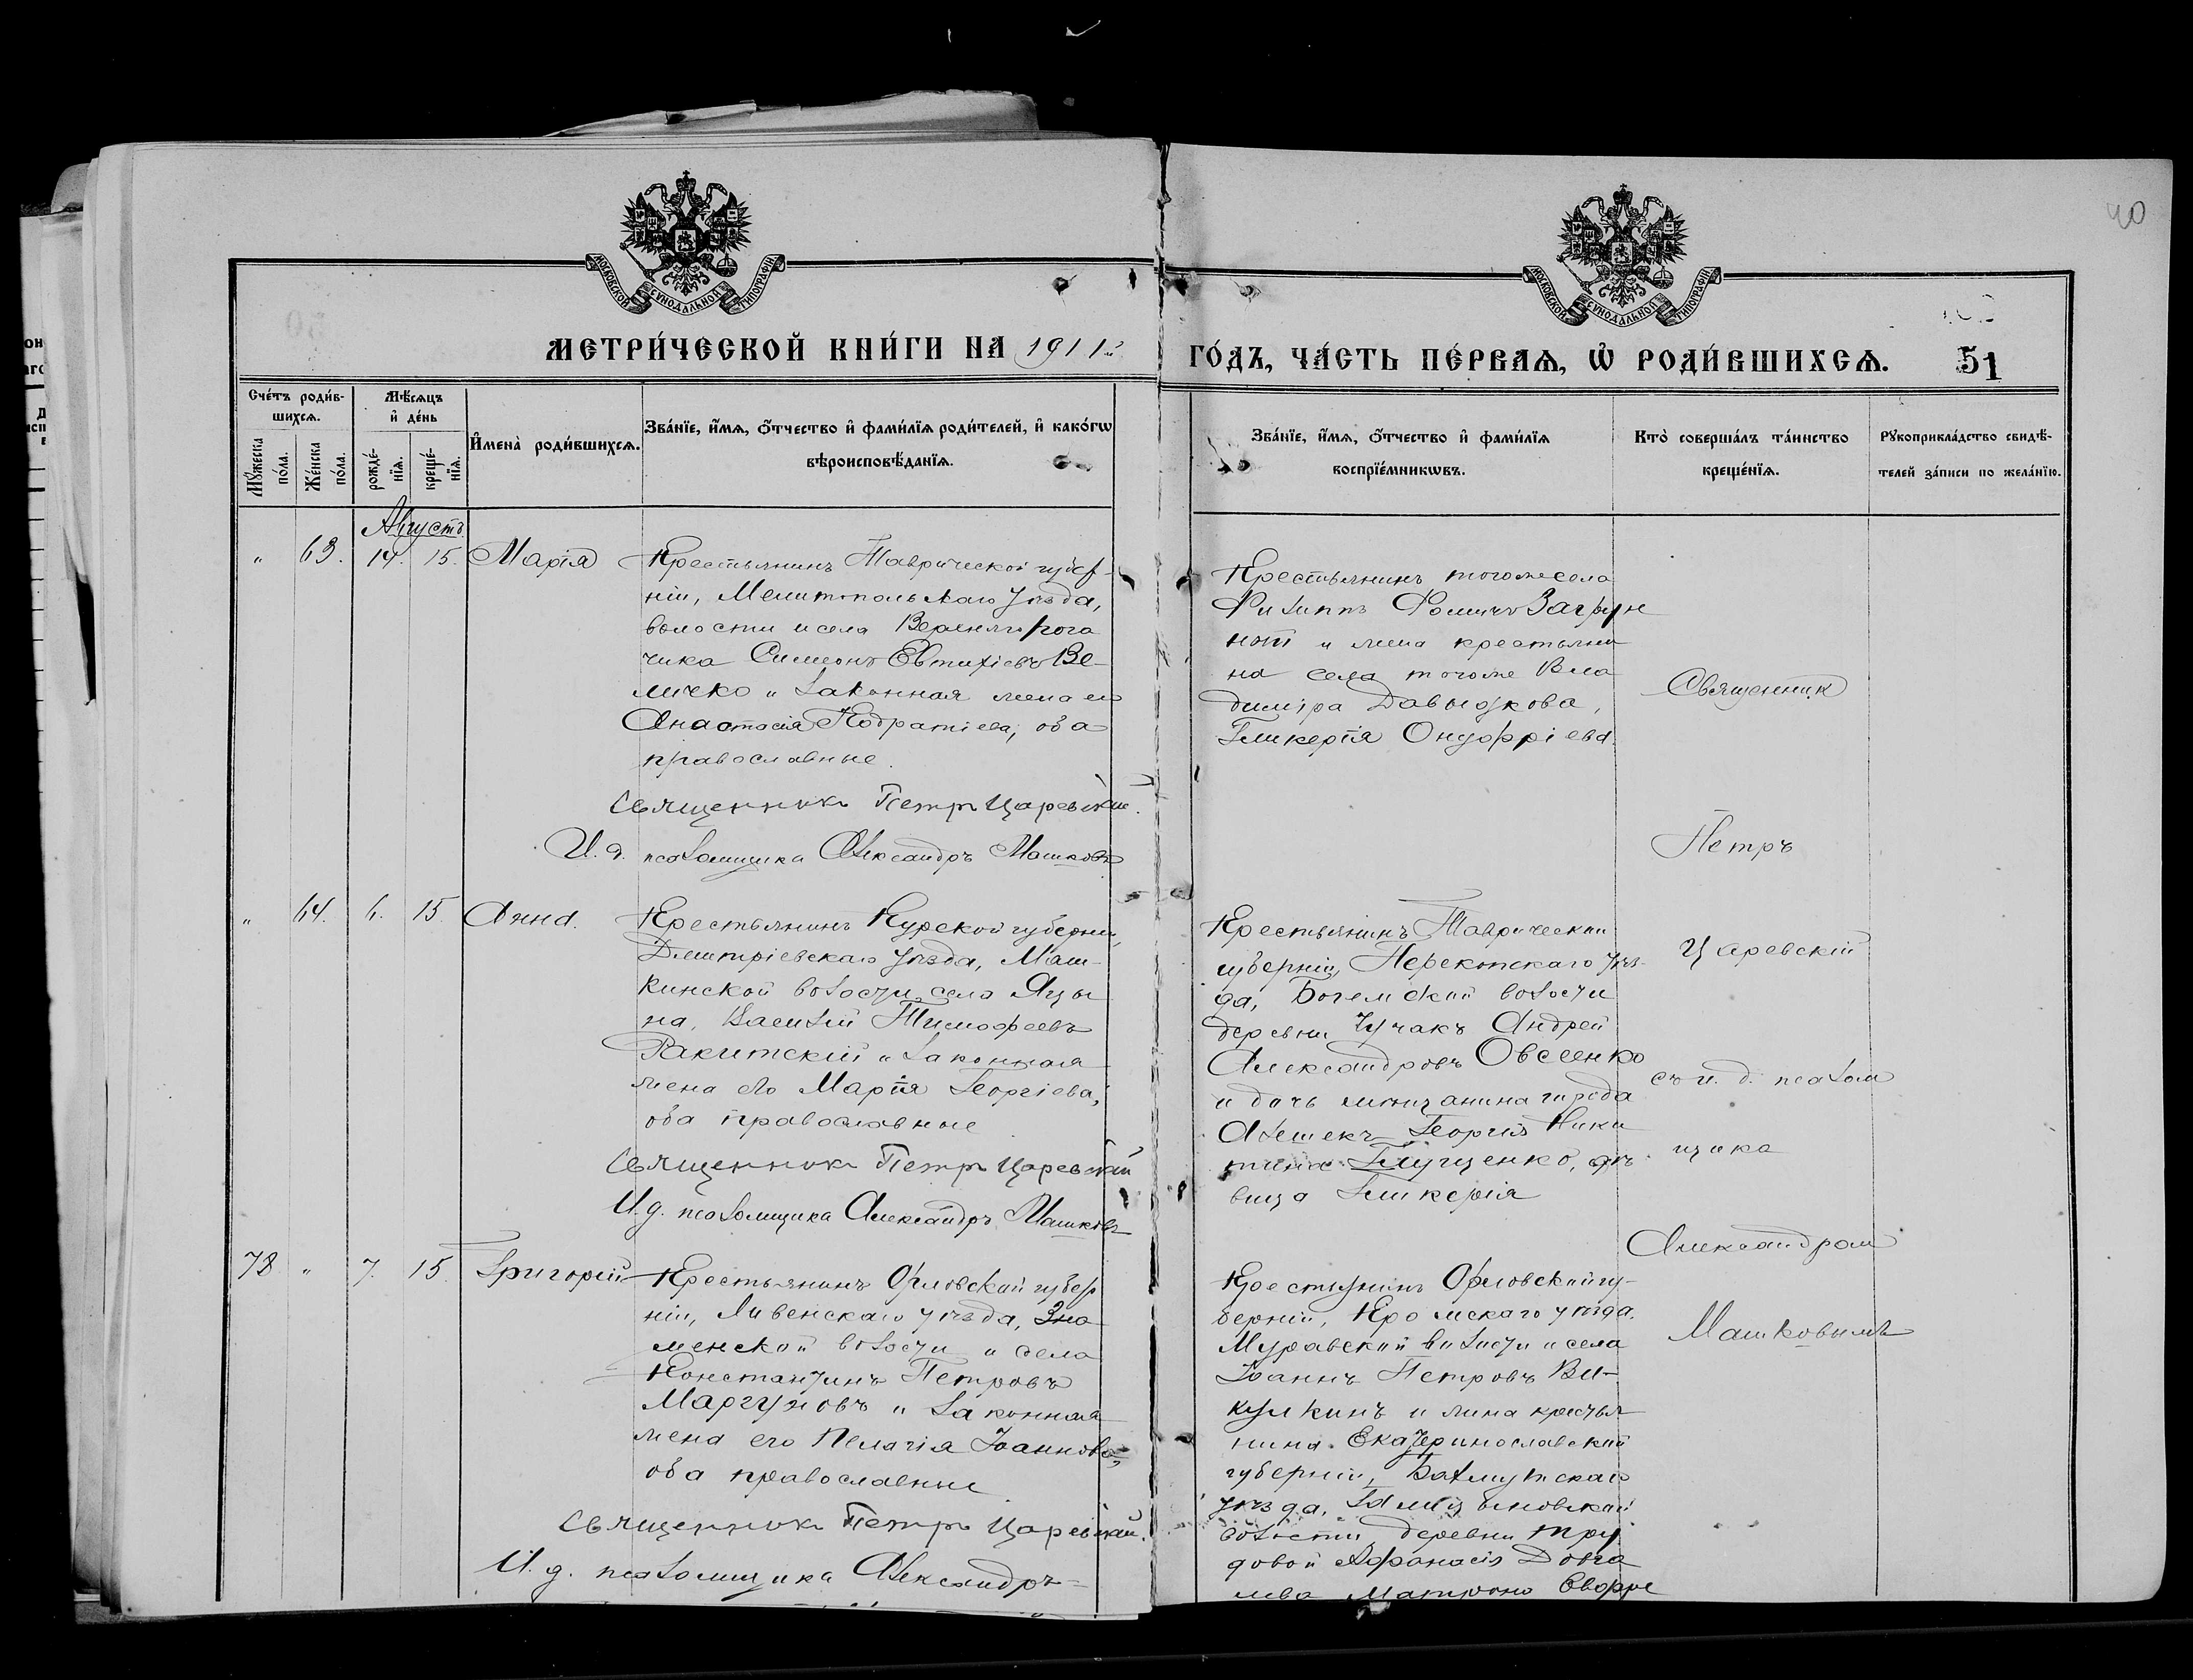 40
МОСКОВСКОЙ СУНОДАЛЬНОЙ ТИПОГРАФІИ
МОСКОВСКОЙ СУНОДАЛЬНОЙ ТИПОГРАФІИ
МЕТРИ́ЧЕСКОЙ КНИ́ГИ НА 1911й
ГО́ДЪ, ЧА́СТЬ ПЕ́РВАѦ, Ѡ҆ РОДИ́ВШИХСѦ. 51
Сче́тъ роди́в-
шихсѧ.
Мꙋ́жеска
по́ла.
Же́нска
по́ла.
Мѣ́сѧцъ
и҆ де́нь
рожде́-
нїѧ.
креще́-
нїѧ.
И҆мена̀ роди́вшихсѧ.
Зва́нїе, и҆́мѧ, ѻ҆́тчество и҆ фами́лїѧ роди́телей, и҆ како́гѡ
вѣроисповѣ́данїѧ.
Зва́нїе, и҆́мѧ, ѻ҆́тчество и҆ фами́лїѧ
воспрїе́мникѡвъ.
Кто̀ соверша́лъ та́инство
креще́нїѧ.
Рꙋкоприкла́дство свидѣ́-
телей за́писи по жела́нїю.
Августъ
" 63. 14. 15. Марія
Крестьянинъ Таврической губер-
ніи, Мелитопольскаго уѣзда,
волости и села Верхняго рога
чика Симеонъ Евтихіевъ Ве-
личко и законная жена его
Анастасія Кодратіева, оба
православные.
Священникъ Петръ Царевскій.
И. д. псаломщика Александръ Машковъ
Крестьянинъ тогоже села
Филиппъ Фомичъ Загрун
ный и жена крестьяни
на села тогоже Вла
диміра Давыдкова,
Гликерія Онуфріева.
Священник
Петръ
Царевскій
съ и. д. псалом
щика
Александром
Машковымъ
" 64. 6. 15. Анна.
Крестьянинъ Курской губерніи,
Дмитріевскаго уѣзда, Маш-
кинской волости, села Яцы
на, Василій Тимофеевъ
Ракитскій и законная
жена его Марія Георгіева,
оба православные
Священникъ Петръ Царевскій
И. д. псаломщика Александръ Машковъ
Крестьянинъ Таврической
губерніи, Перекопскаго уѣз-
да, Богемской волости
деревни Чучакъ Андрей
Александровъ Овсеенко
и дочь мѣщанина города
Алешекъ Георгія Ники
тина Глущенко, дѣ
вица Гликерія
78 " 7. 15. Григорій
Крестьянинъ Орловской губер
ніи, Ливенскаго уѣзда, Зна
менской волости и села
Константинъ Петровъ
Маргуновъ и законная
жена его Пелагія Іоаннова,
оба православные
Священникъ Петръ Царевскій.
И. д. псаломщика Александръ
Крестьянинъ Орловской гу-
берніи, Кромскаго уѣзда.
Муравской волости и села
Іоаннъ Петровъ Ви-
кулкинъ и жена крестья
нина Екатеринославской
губерніи, Бахмутскаго
уѣзда,
волости деревни Тру
довой Афанасія Довга
лева Матрона